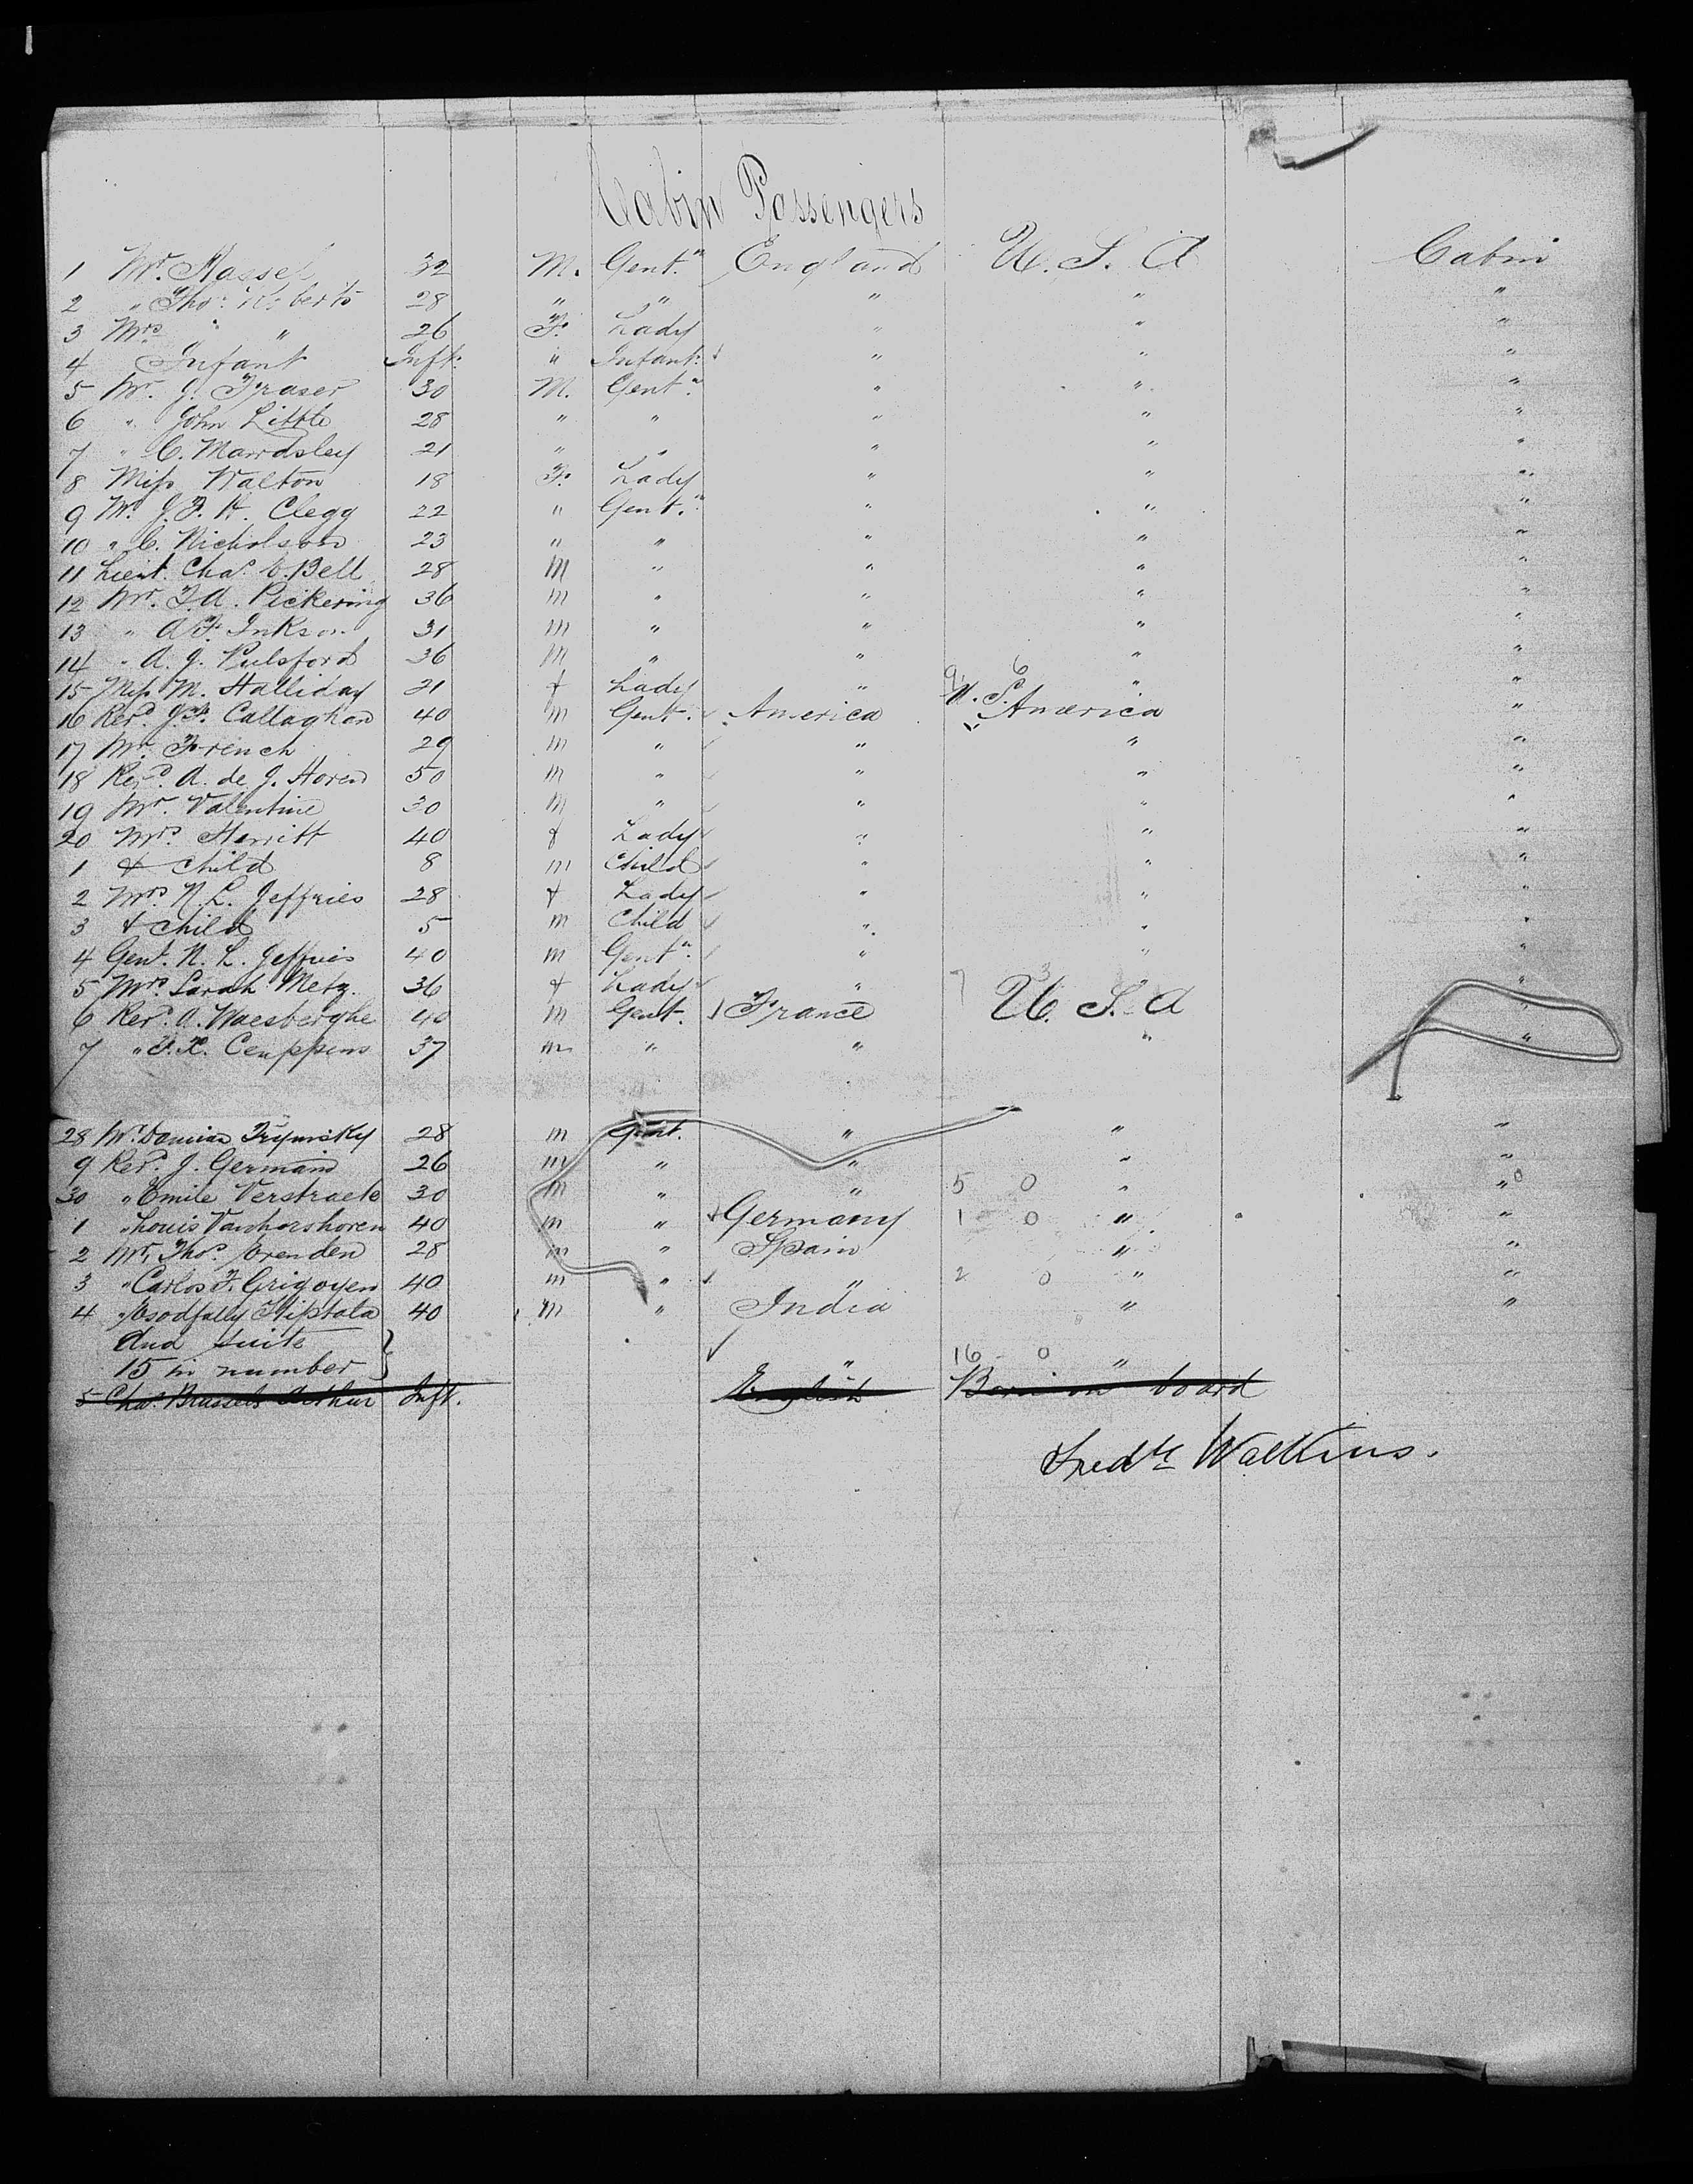 Cabin Passengers
1 Mr. Hassel 32 M. Gent.n England U. S. A Cabin
2 " Thos. Roberts 28 " " " " "
3 Mrs " " 26 F. Lady " " "
4 Infant Inft. " Infant. " " "
5 Mr. J. Fraser 30 M. Gent.n " " "
6 " John Little 28 " " " " "
7 " C. Mawdsley 21 " " " " "
8 Miss Walton 18 F. Lady " " "
9 Mr J. F. H. Clegg 22 " Gent.n " " "
10 " C. Nicholson 23 " " " " "
11 Lieut. Chas. Bell 28 M " " " "
12 Mr. T. A. Pickering 36 m " " " "
13 " A F. Inkson 31 m " " " "
14 " A. J. Pulsford 36 M " " " "
15 Miss M. Halliday 21 f Lady " " "
9 6
16 Revd. J. F. Callaghan 40 m Gent. America U. S. America "
17 Mr. French 29 m " " " "
18 Revd. A. de J. Horen 50 m " " " "
19 Mr. Valentine 30 M " " " "
20 Mrs. Herritt 40 f Lady " " "
1 & Child 8 m Child " " "
2 Mrs N. L. Jeffries 28 f Lady " " "
3 & Child 5 m Child " " "
4 Genl. N. L. Jeffries 40 m Gent.n " " "
5 Mrs. Sarah Metz. 36 f Lady " 7 3 " "
6 Revd. A. Waesberghe 40 m Gent. France U. S. A "
7 " F. X. Ceuppens 37 m " " " "
28 Mr. Damian 28 m Gent. " " "
9 Revd. J. Germain 26 m " " " "
30 " Emile Verstraete 30 m " " 5 0 " "
1 " Louis Vanhorshoren 40 m " Germany 1 0 " "
2 Mr. Thos. 28 m " Spain " "
3 " Carlos F. Grigoyen 40 m " " 2 0 " "
4 " 40 m " India " "
And Suite
15 in number " 16 0 "
5 Chas. Brussels Arthur Inft. English Born on board
Fredk Watkins.